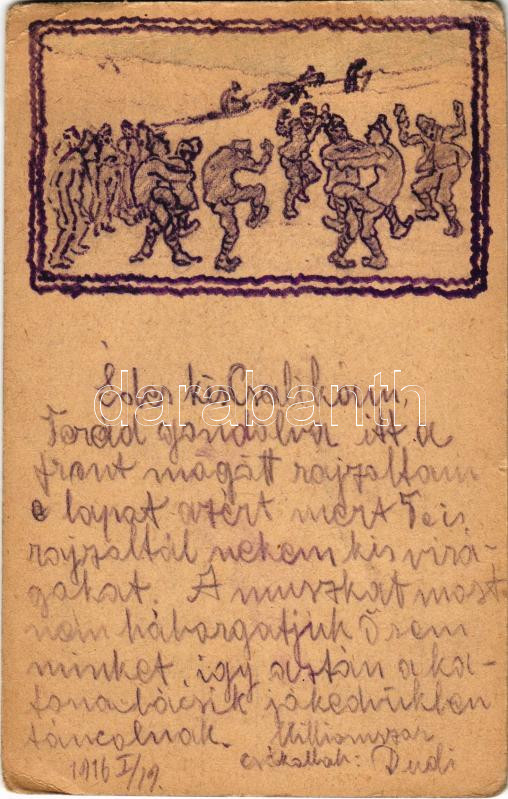 Édes kis Galikám
Terád gondolva itt a
front mögött rajzoltam
e lapot azért mert Te is
rajzoltál nekem kis virá-
gokat. A muszkát most
nem háborgatjuk Ő sem
minket, így aztán a ka-
tona bácsik jókedvükben
táncolnak. Milliomszor
csókollak: Dudi
1916 I/19.
darabanth